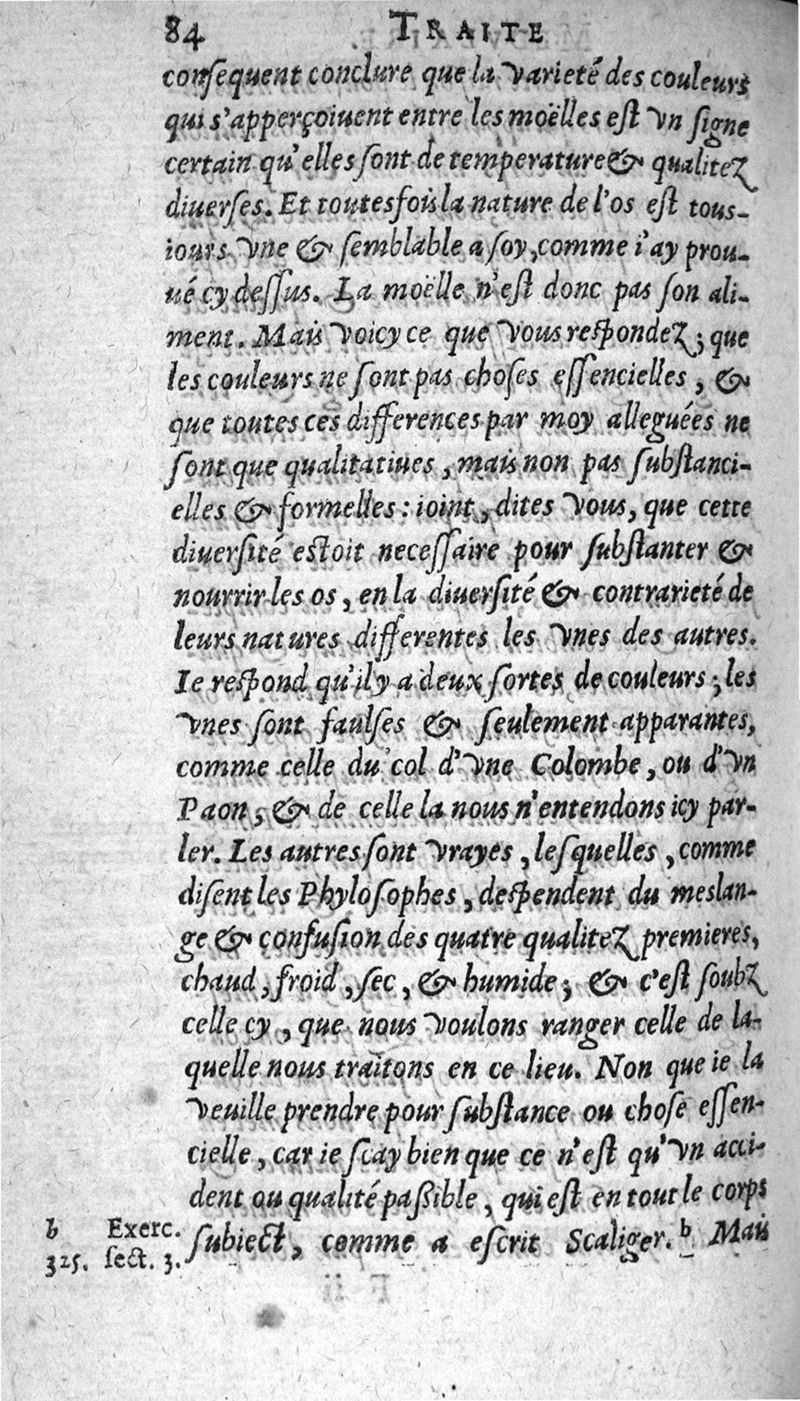 84 TRAITE
conſequent conclure que la varieté des couleurs
qui s'apperçoiuent entre les moëlles eſt vn ſigne
certain qu'elles ſont de temperature & qualitez
diuerſes. Et toutesfois la nature de l'os eſt tous-
iours vne & ſemblable a ſoy, comme i'ay prou-
ué cy deſſus. La moëlle n'eſt donc pas ſon ali-
ment. Mais voicy ce que vous reſpondez; que
les couleurs ne ſont pas choſes eſſencielles, &
que toutes ces differences par moy alleguées ne
ſont que qualitatiues, mais non pas ſubſtanci-
elles & formelles: ioint, dites vous, que cette
diuerſité estoit neceſſaire pour ſubſtanter &
nourrir les os, en la diuerſité & contrarieté de
leurs natures differentes les vnes des autres.
Ie reſpond qu'il y a deux ſortes de couleurs; les
vnes ſont faulſes & ſeulement apparantes,
comme celle du col d'vne Colombe, ou d'vn
Paon, & de celle la nous n'entendons icy par-
ler. Les autres ſont vrayes, leſquelles, comme
diſent les Phyloſophes, deſpendent du meslan-
ge & confuſion des quatre qualitez premieres,
chaud, froid, ſec, & humide; & c'eſt ſoubz
celle cy, que nous voulons ranger celle de la-
quelle nous traitons en ce lieu. Non que ie la
veuille prendre pour ſubſtance ou choſe eſſen-
cielle, car ie ſcay bien que ce n'eſt qu'vn acci-
dent ou qualité paßible, qui eſt en tout le corps
ſubiect, comme a eſcrit Scaliger. b Mais
b Exerc.
325. ſect. 3.